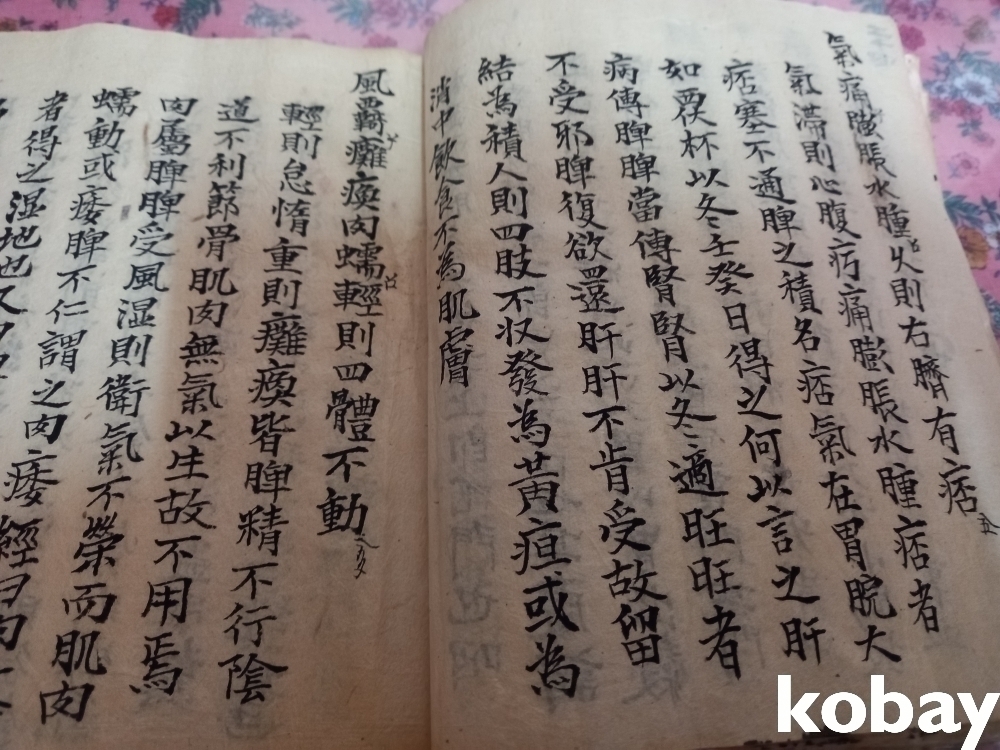 氣痛膨脹水腫火則右臍有痞
氣滯則心腹疞痛膨脹水腫痞者
痞塞不通脾之積名痞氣在胃脘大
如覆杯以冬壬癸日得之何以言之肝
病傳脾脾當傳腎腎以冬適旺旺者
不受邪脾復欲還肝肝不肯受故留
結為積人則四肢不収發為黃疸或為
消中飲食不為肌膚
風羇癱瘓肉蠕輕則四體不動
輕則怠惰重則癱瘓皆脾精不行陰
道不利節骨肌肉無氣以生故不用焉
肉屬脾脾受風湿則衛氣不榮而肌肉
蠕動或痿脾不仁謂之肉痿經曰肉
者得之湿地也又曰
kobay